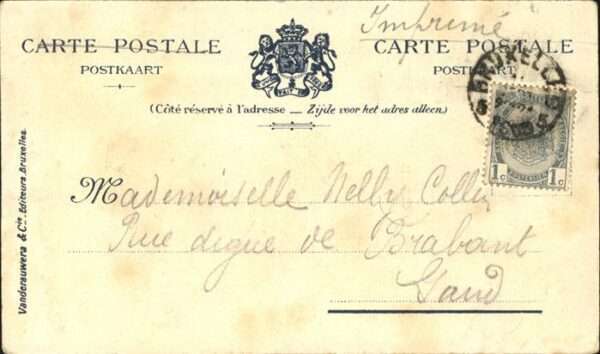 Imprimé
CARTE POSTALE
POSTKAART
CARTE POSTALE
POSTKAART
(Côté réservé à l'adresse — Zijde voor het adres alleen.)
Mademoiselle Nelly
Rue digue de Brabant
Gand
1c 1c
Vanderauwera & Cie, Editeurs, Bruxelles.